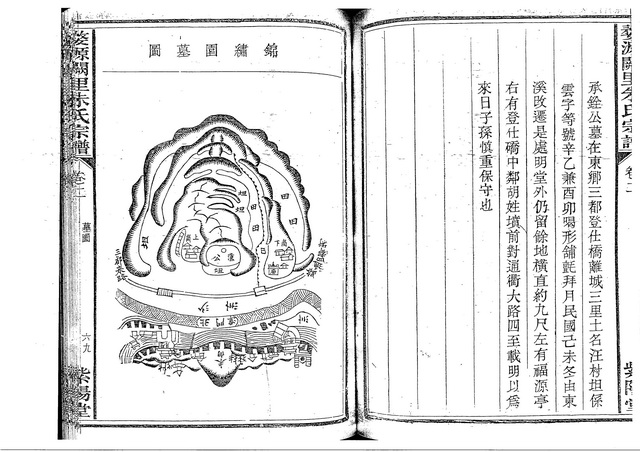 婺源闕里朱氏宗譜
卷二
紫陽堂
承銓公墓在東鄉三都登仕橋離城三里土名汪村坦係
雲字等號辛乙兼酉卯喝形舖氈拜月民國己未冬由東
溪改遷是處明堂外仍留餘地橫直約九尺左有福源亭
右有登仕碣中鄰胡姓墳前對通衢大路四至載明以爲
來日子孫慎重保守也
錦繡園墓圖
坦
坦
田
田
田
田
坦
公
坦
沙
洲
北
門
洲
婺源闕里朱氏宗譜
卷二
墓圖
六九
紫陽堂